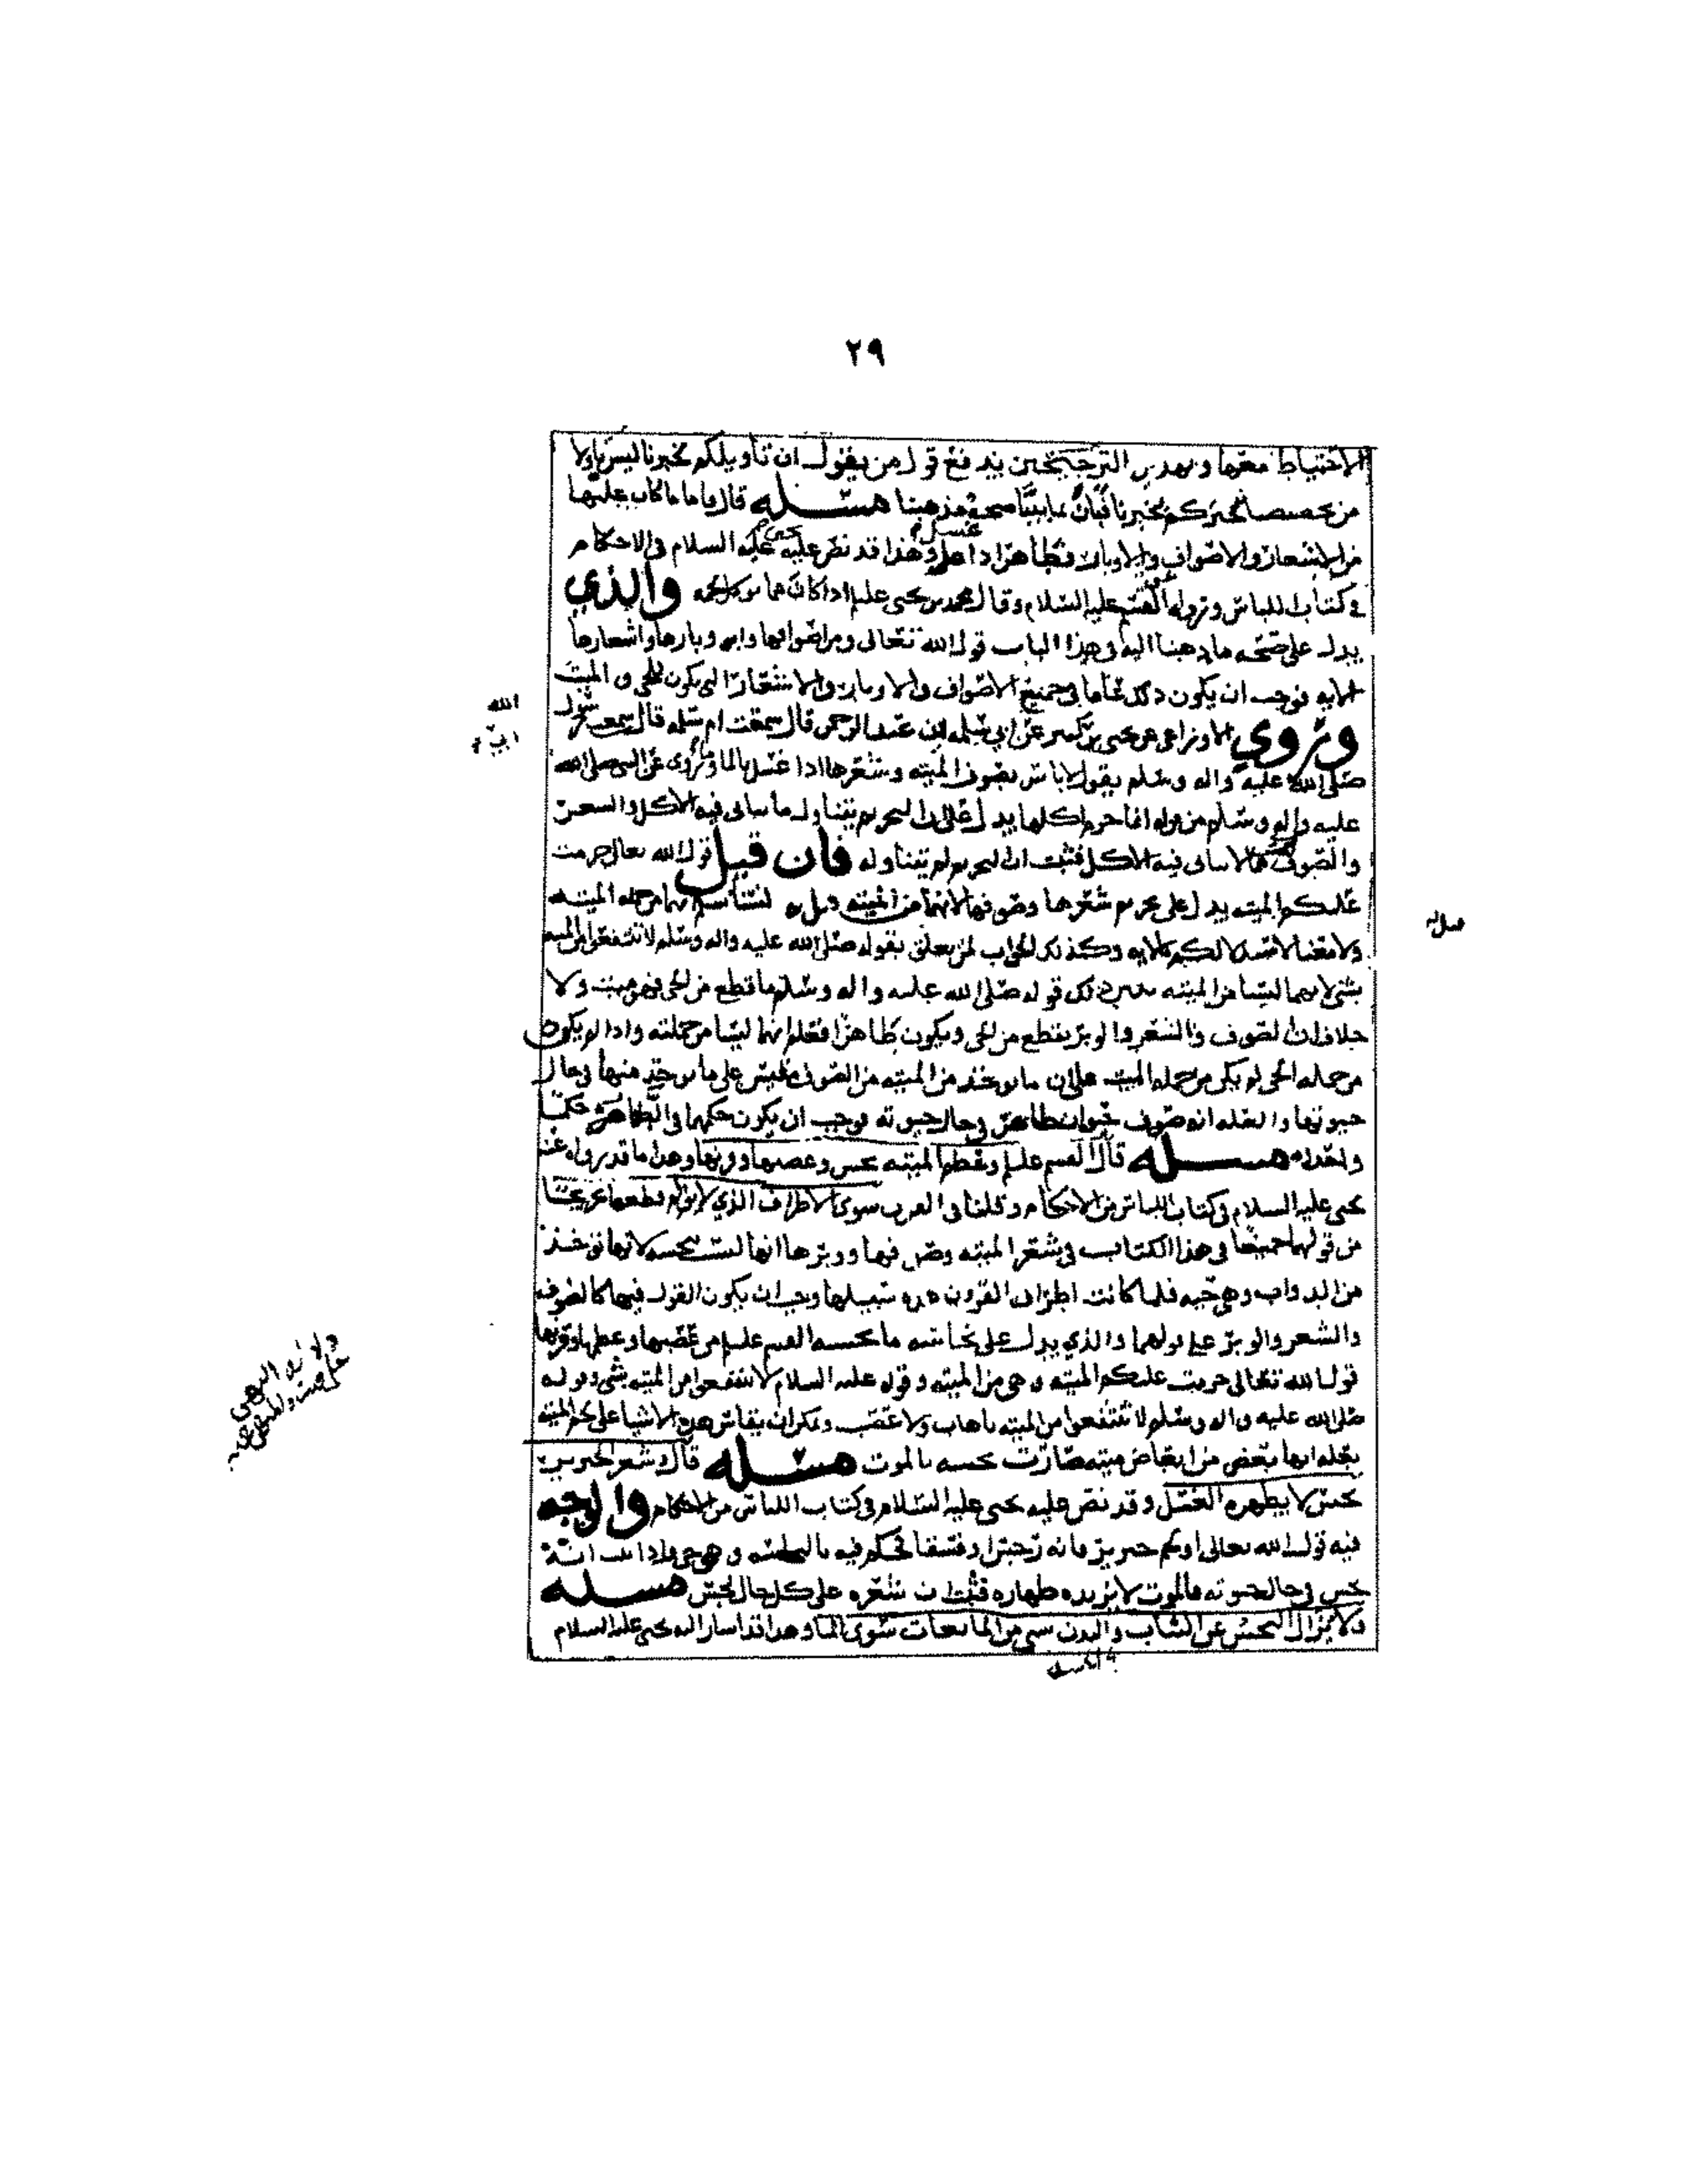 ٢٩
الاحتياط معها وبهدين الترجيحين يندفع قول من يقول ان تأويلكم لخبرنا ليس باولا
من تخصيصنا لخبركم بخبرنا فبان بما بينا صحة مذهبنا مسئله قال واما ما كان عليها
من الاشعار والاصواف والاوبار فطاهر ادا غسل وهذا قد نص عليه يحيى عليه السلام في الاحكام
في كتاب اللباس ورواه عن القسم عليه السلام وقال محمد بن يحيى عليلم ادا كان مما يوكل لحمه والذي
يدل على صحه ما دهبنا اليه في هذا الباب قول الله تعالى ومن اصوافها واوبارها واشعارها
الايه فوجب ان يكون دلك عاما في جميع الاصواف والاوبار والاشعار التي يكون للحي والميت
وروي الاوزاعي عن يحيى بن كثير عن ابي سلمه ابن عبد الرحمن قال سمعت ام سلمه قال سمعت رسول
الله
صلى الله عليه واله وسلم يقول لا باس بصوف الميته وشعرها ادا غسل بالما وما روي عن النبي صلى الله
عليه واله وسلم من قوله انما حرم اكلها يدل على ان التحريم يتناول ما يتاتى فيه الاكل والشعر
والصوف مما لا يتاتى فيه الاكل فثبت ان التحريم لم يتناوله فان قيل قول الله تعالى حرمت
عليكم الميته يدل على تحريم شعرها وصوفها لانهما من الميته قيل له لسنا نسلم انهما من جمله الميته
ولا معنا لاستدلالكم بالايه وكذلك الجواب لمن تعلق بقوله صلى الله عليه واله وسلم لا تنتفعوا من الميته
بشي لانهما ليسا من الميته يبين ذلك قوله صلى الله عليه واله وسلم ما قطع من الحي فهو ميت ولا
خلاف ان الصوف والشعر والوبر يقطع من الحي ويكون طاهرا فعلم انهما ليسا من جملته وادا لم يكونا
من جمله الحي لم يكن من جمله الميت على ان ما يوخذ من الميته من الصوف مقيس على ما يوخذ منها في حال
حيوتها والعله انه صوف حيوان طاهر في حال حيوته فوجب ان يكون حكمها في الطهاره حكما
واحدا مسئله قال القسم عليلم وعظم الميته نجس وعصبها وقرنها وهذا ما قد رواه عنه
يحيى عليه السلام في كتاب اللباس من الاحكام وقلنا في القرن سوى الاطراف الذي لا يولم قطعها تخريجا
من قولهما جميعا في هذا الكتاب في شعر الميته وصوفها ووبرها انها ليست بنجسه لانها توخذ
من الدواب وهي حيه فلما كانت اطراف القرون هذه سبيلها وجب ان يكون القول فيها كالصوف
والشعر والوبر على قولهما والذي يدل على نجاسه ما نجسه القسم عليلم من عصبها وعظمها وقرنها
قول الله تعالى حرمت عليكم الميته وهي من الميته وقوله عليه السلام لا تنتفعوا من الميته بشي وقوله
صلى الله عليه واله وسلم لا تنتفعوا من الميته باهاب ولا عصب ويمكن ان يقاس هذه الاشيا على لحم الميته
بعله انها بعض من ابعاض ميته صارت نجسه بالموت مسئله قال وشعر الخنزير
نجس لا يطهره الغسل وقد نص عليه يحيى عليه السلام في كتاب اللباس من الاحكام والوجه
فيه قول الله تعالى او لحم خنزير فانه رجس او فسقا فحكم فيه بالنجاسه وهو حي وادا ثبت انه
نجس في حال حيوته فالموت لا يزيده طهاره فثبت ان شعره على كل حال نجس مسئله
ولا يزال النجس عن الثياب والبدن بشي من المايعات سوى الما وهذا قد اشار اليه يحيى عليه السلام